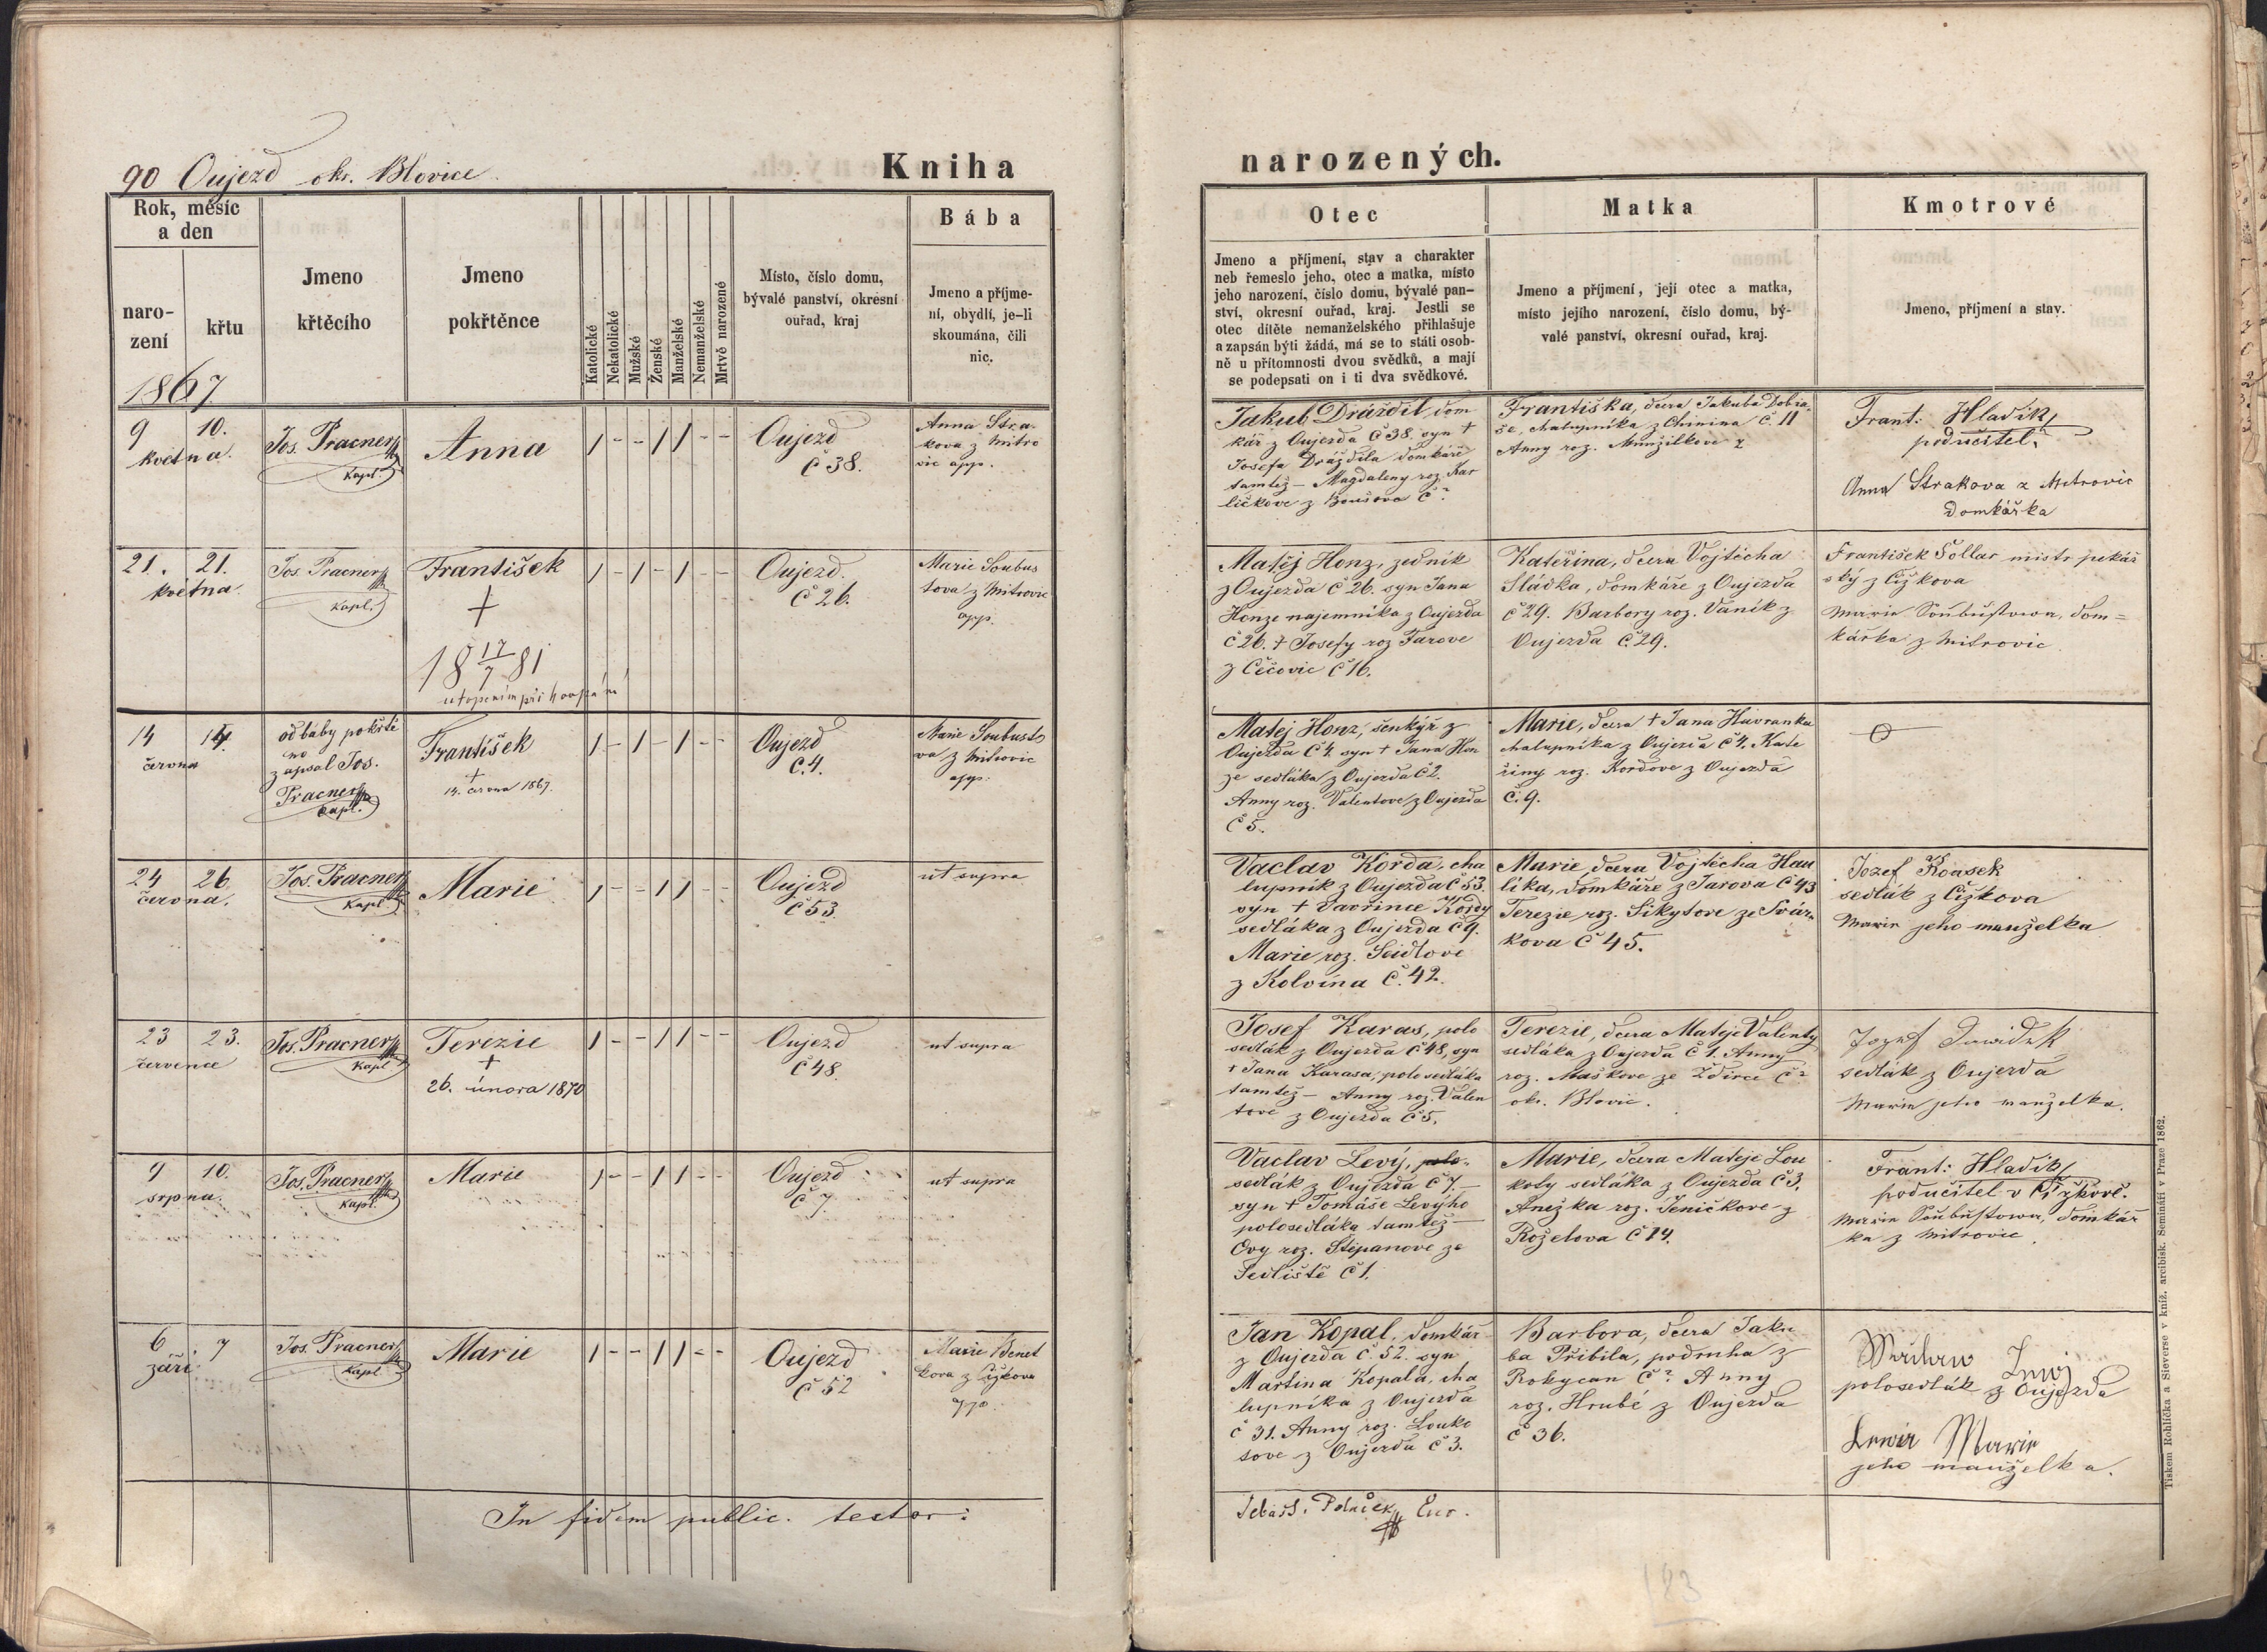 90 Oujezd okr. Blovice.
Kniha
narozených.
Rok, měsíc
a den
naro-
zení
křtu
1867
Jmeno
křtěcího
Jmeno
pokřtěnce
Katolické
Nekatolické
Mužské
Ženské
Manželské
Nemanželské
Mrtvě narozené
Místo, číslo domu,
bývalé panství, okresní
ouřad, kraj
Bába
Jmeno a příjme-
ní, obydlí, je-li
skoumána, čili
nic.
Otec
Jmeno a příjmení, stav a charakter
neb řemeslo jeho, otec a matka, místo
jeho narození, číslo domu, bývalé pan-
ství, okresní ouřad, kraj. Jestli se
otec dítěte nemanželského přihlašuje
a zapsán býti žádá, má se to státi osob-
ně u přítomnosti dvou svědků, a mají
se podepsati on i ti dva svědkové.
Matka
Jmeno a příjmení, její otec a matka,
místo jejího narození, číslo domu, bý-
valé panství, okresní ouřad, kraj.
Kmotrové
Jmeno, příjmení a stav.
9 10.
května.
Jos. Pracner
Kapl.
Anna
1 - - 1 1 - -
Oujezd
č 38.
Anna Stra-
kova z Mitro
vic app.
Jakub Dráždil, dom
kář z Oujezda č 38. syn †
Josefa Dráždila domkáře
tamtéž – Magdaleny roz. Kar
ličkove z Boušova č ?
Františka, dcera Jakuba Dobia-
še, chalupníka z Chinina č. 11
Anny roz.
Frant: Hladík
podučitel.
Anna Strakova z Mitrovic
domkářka
21. 21.
května
Jos. Pracner
Kapl.
František
†
18 17/7 81
utopením při koupání
1 - 1 - 1 - -
Oujezd.
č 26.
Marie Soubus
tová z Mitrovic
app.
Matěj Honz, zedník
z Oujezda č 26. syn Jana
Honze najemníka z Oujezda
č 26. † Josefy roz Jarove
z Čečovic č 16.
Kateřina, dcera Vojtěcha
Sládka, domkáře z Oujezda
č 29. Barbory roz. Vaník z
Oujezda č. 29.
František Šollar mistr pekář
ský z Čižkova
Marie Soubustowa, dom=
kářka z Mitrovic.
14 14.
června
od báby pokřtě
no
zapsal Jos.
Pracner
Kapl.
František
†
14. června 1867.
1 - 1 - 1 - -
Oujezd
č. 4.
Marie Soubusto
va z Mitrovic
app.
Matěj Honz, šenkýř z
Oujezda č 4. syn † Jana Hon
ze sedláka z Oujezda č 2.
Anny roz. Valentove z Oujezda
č 5.
Marie, dcera † Jana Havranka
chalupníka z Oujezda č 4. Kate
řiny roz. Kordove z Oujezda
č. 9.
24 26
června.
Jos. Pracner
Kapl.
Marie
1 - - 1 1 - -
Oujezd
č 53.
ut supra
Vaclav Korda, cha
lupník z Oujezda č 53.
syn † Vavřince Kordy
sedláka z Oujezda č 9.
Marie roz. Seidlove
z Kolvína č. 42.
Marie, dcera Vojtěcha Hau
líka, domkáře z Jarova č 43
Terezie roz. Sikytove ze Svár-
kova č 45.
Jozef Kvasek
sedlák z Čižkova
Marie jeho manželka
23 23.
července
Jos. Pracner
Kapl
Terezie
†
26. února 1870
1 - - 1 1 - -
Oujezd
č 48.
ut supra
Josef Karas, polo
sedlák z Oujezda č 48, syn
† Jana Karasa, polosedláka
tamtéž – Anny roz. Valen
tove z Oujezda č 5.
Terezie, dcera Matěje Valenty
sedláka z Oujezda č 1. Anny
roz. Maškove ze Ždirce č ?
okr. Blovic.
Jozef Dawidek
sedlák z Oujezda
Marie jeho manželka.
9 10.
srpna.
Jos. Pracner
Kapl.
Marie
1 - - 1 1 - -
Oujezd
č 7.
ut supra
Vaclav Levý, polo-
sedlák z Oujezda č 7. –
syn † Tomáše Levýho
polosedláka tamtéž –
Evy roz. Štěpanove ze
Sedliště č 1.
Marie, dcera Matěje Lou
koty sedláka z Oujezda č 3.
Anežka roz. Jeničkove z
Roželova č 14.
Frant: Hladík
podučitel v Čižkově.
Marie Soubustowa, domkář
ka z Mitrovic.
6 7
září.
Jos. Pracner
Kapl.
Marie
1 - - 1 1 - -
Oujezd
č 52
Marie Benet
kova z Čižkova
app.
Jan Kopal, domkář
z Oujezda č. 52. syn
Martina Kopala, cha
lupníka z Oujezda
č 31. Anny roz. Louko
tove z Oujezda č 3.
Barbora, dcera Jaku
ba Přibila, podruha z
Rokycan č ? Anny
roz. Hrubé z Oujezda
č 36.
Waclaw Lewj
polosedlák z Oujezda
Lewa Marie
jeho manželka.
In fidem public. testor:
Sebast. Polaček
Tiskem Rohlíčka a Sieverse v kníž. arcibisk. Semináři v Praze 1862.
183